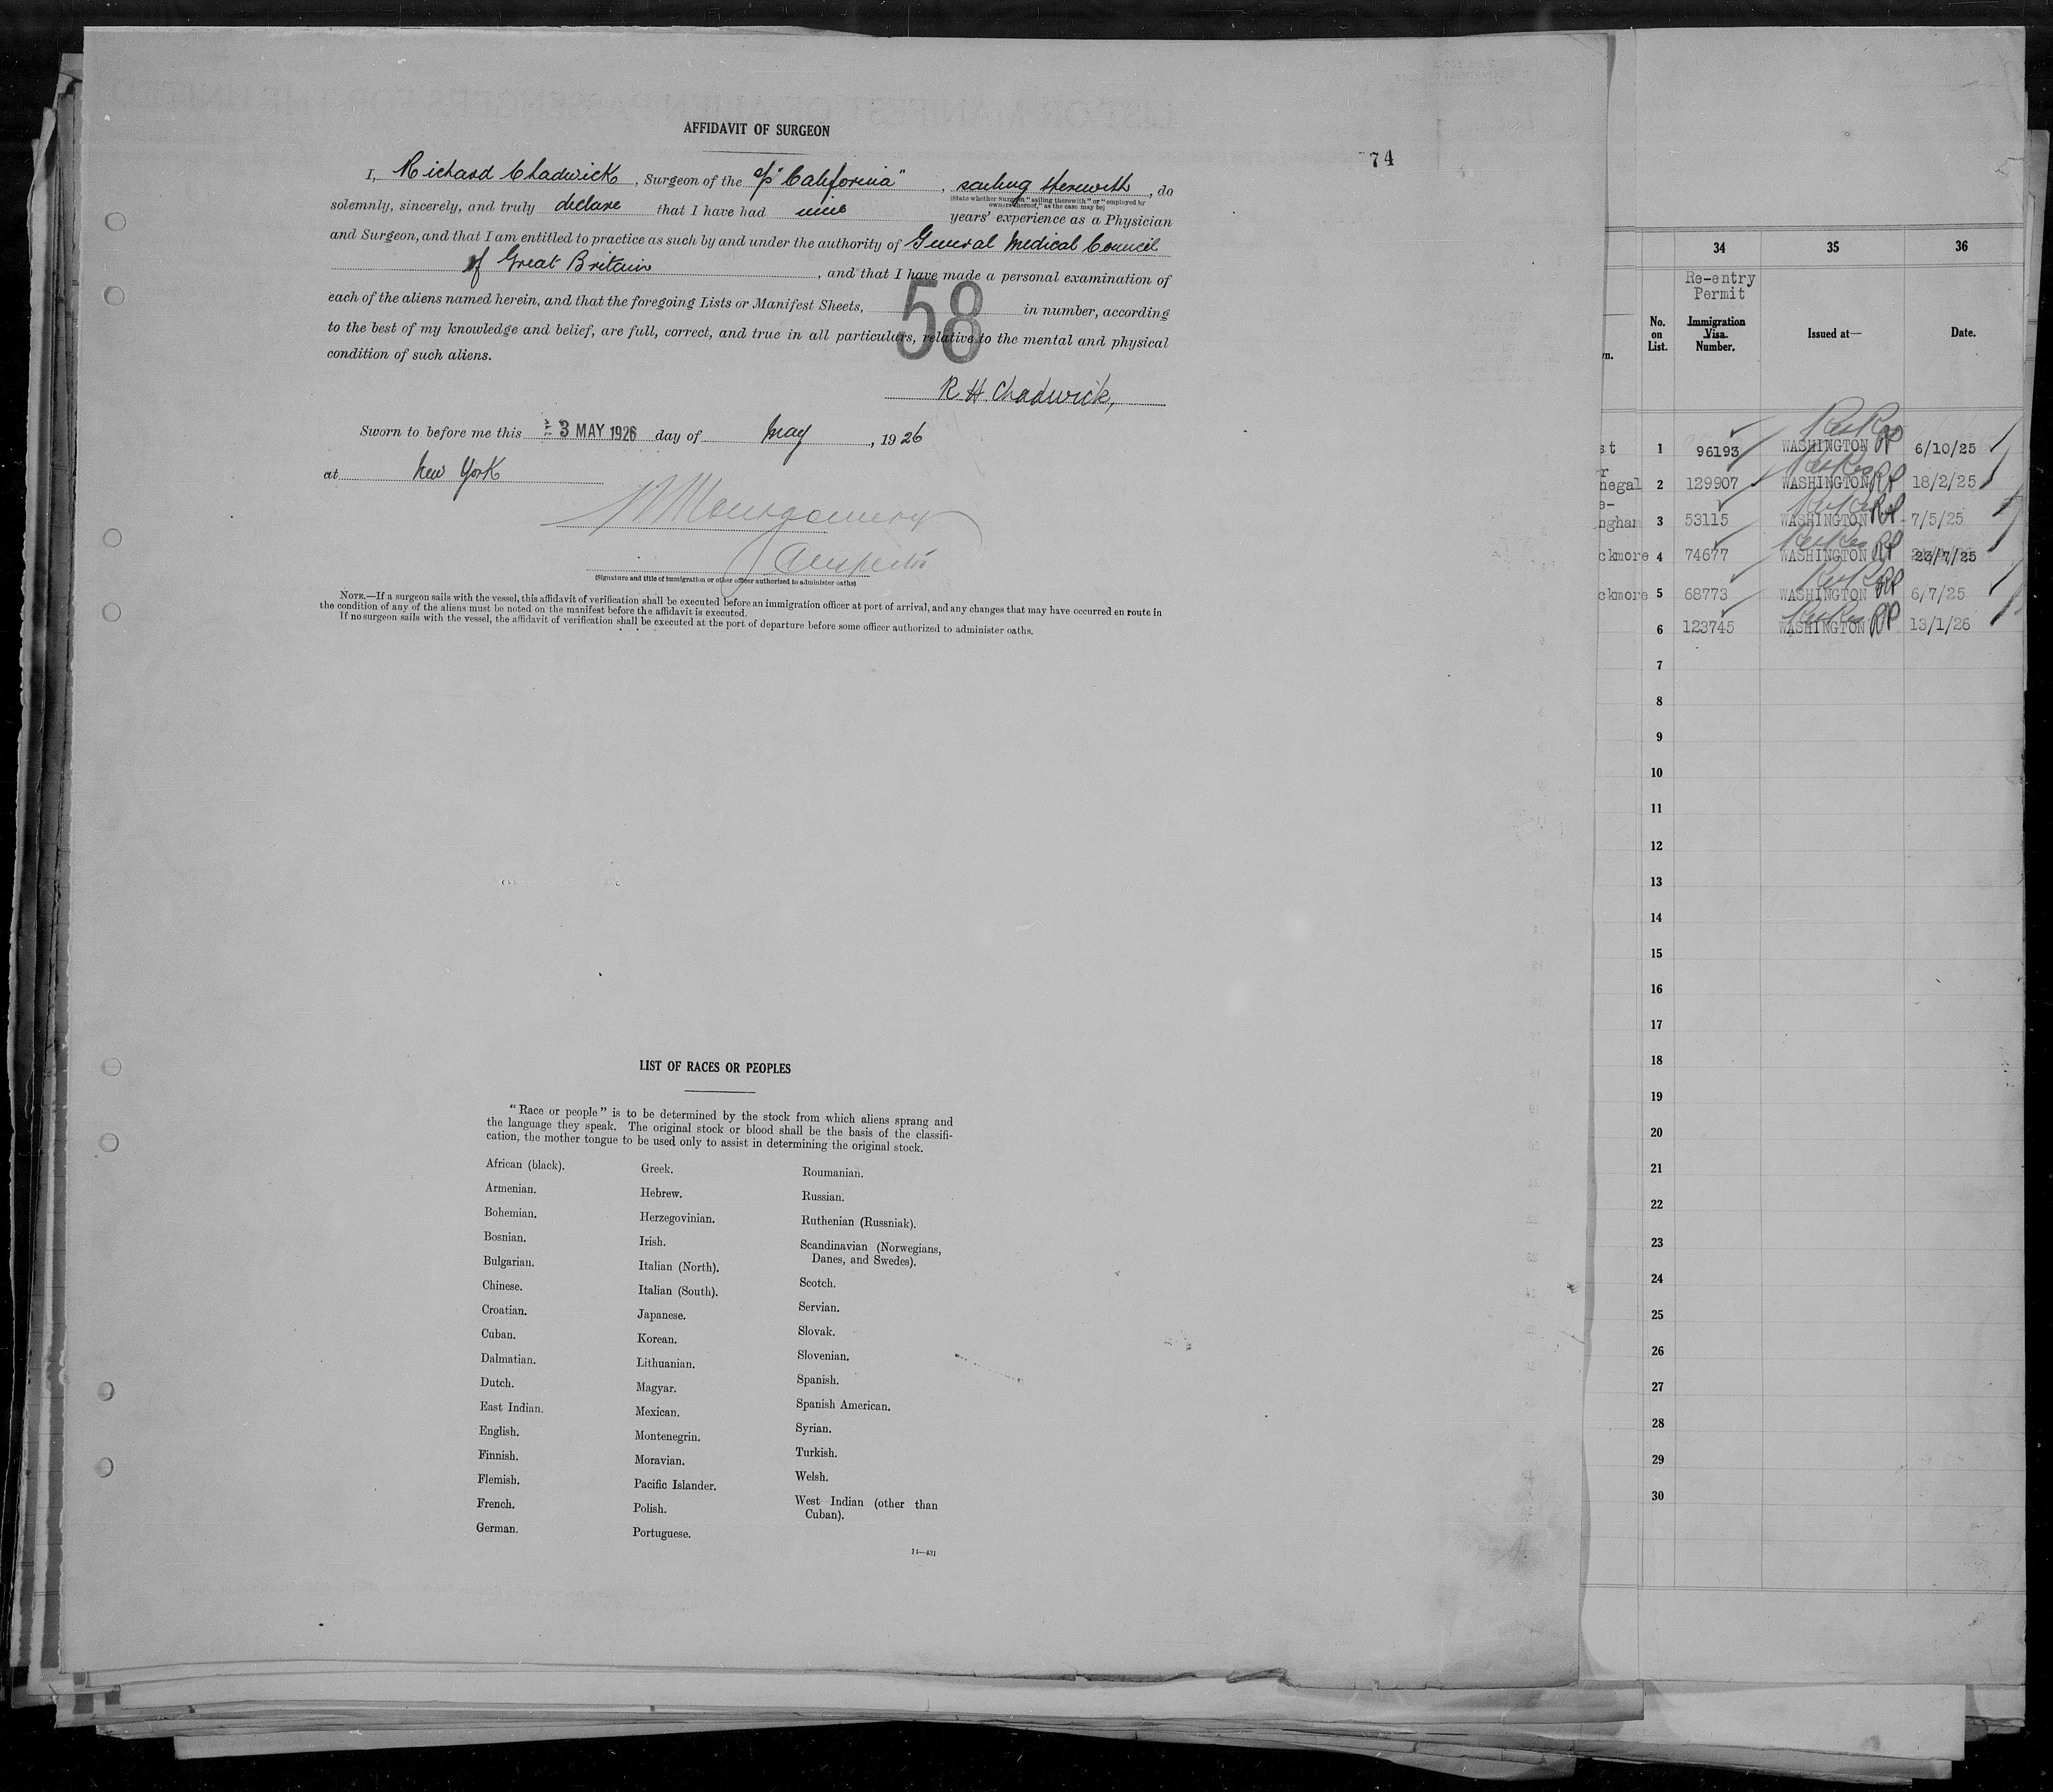 AFFIDAVIT OF SURGEON
74
I, Richard Chadwick, Surgeon of the s/s "California", sailing therewith, do
(State whether Surgeon "sailing therewith" or "employed by
owners thereof," as the case may be)
solemnly, sincerely, and truly declare that I have had nine years' experience as a Physician
and Surgeon, and that I am entitled to practice as such by and under the authority of General Medical Council
of Great Britain, and that I have made a personal examination of
each of the aliens named herein, and that the foregoing Lists or Manifest Sheets, 58 in number, according
to the best of my knowledge and belief, are full, correct, and true in all particulars, relative to the mental and physical
condition of such aliens.
R. H. Chadwick,
Sworn to before me this 3 MAY 1926 day of May, 1926
at New York
Montgomery
Inspector
(Signature and title of immigration or other officer authorized to administer oaths)
NOTE.—If a surgeon sails with the vessel, this affidavit of verification shall be executed before an immigration officer at port of arrival, and any changes that may have occurred en route in
the condition of any of the aliens must be noted on the manifest before the affidavit is executed.
If no surgeon sails with the vessel, the affidavit of verification shall be executed at the port of departure before some officer authorized to administer oaths.
LIST OF RACES OR PEOPLES
"Race or people" is to be determined by the stock from which aliens sprang and
the language they speak. The original stock or blood shall be the basis of the classifi-
cation, the mother tongue to be used only to assist in determining the original stock.
African (black).
Armenian.
Bohemian.
Bosnian.
Bulgarian.
Chinese.
Croatian.
Cuban.
Dalmatian.
Dutch.
East Indian.
English.
Finnish.
Flemish.
French.
German.
Greek.
Hebrew.
Herzegovinian.
Irish.
Italian (North).
Italian (South).
Japanese.
Korean.
Lithuanian.
Magyar.
Mexican.
Montenegrin.
Moravian.
Pacific Islander.
Polish.
Portuguese.
Roumanian.
Russian.
Ruthenian (Russniak).
Scandinavian (Norwegians,
Danes, and Swedes).
Scotch.
Servian.
Slovak.
Slovenian.
Spanish.
Spanish American.
Syrian.
Turkish.
Welsh.
West Indian (other than
Cuban).
14—431
34 35 36
Re-entry
Permit
No.
on
List.
Immigration
Visa
Number.
Issued at—
Date.
st 1 96193 WASHINGTON RP 6/10/25
negal 2 129907 WASHINGTON RP 18/2/25
ngham 3 53115 WASHINGTON RP 7/5/25
ckmore 4 74677 WASHINGTON RP 23/7/25
ckmore 5 68773 WASHINGTON RP 6/7/25
6 123745 WASHINGTON RP 13/1/26
7
8
9
10
11
12
13
14
15
16
17
18
19
20
21
22
23
24
25
26
27
28
29
30